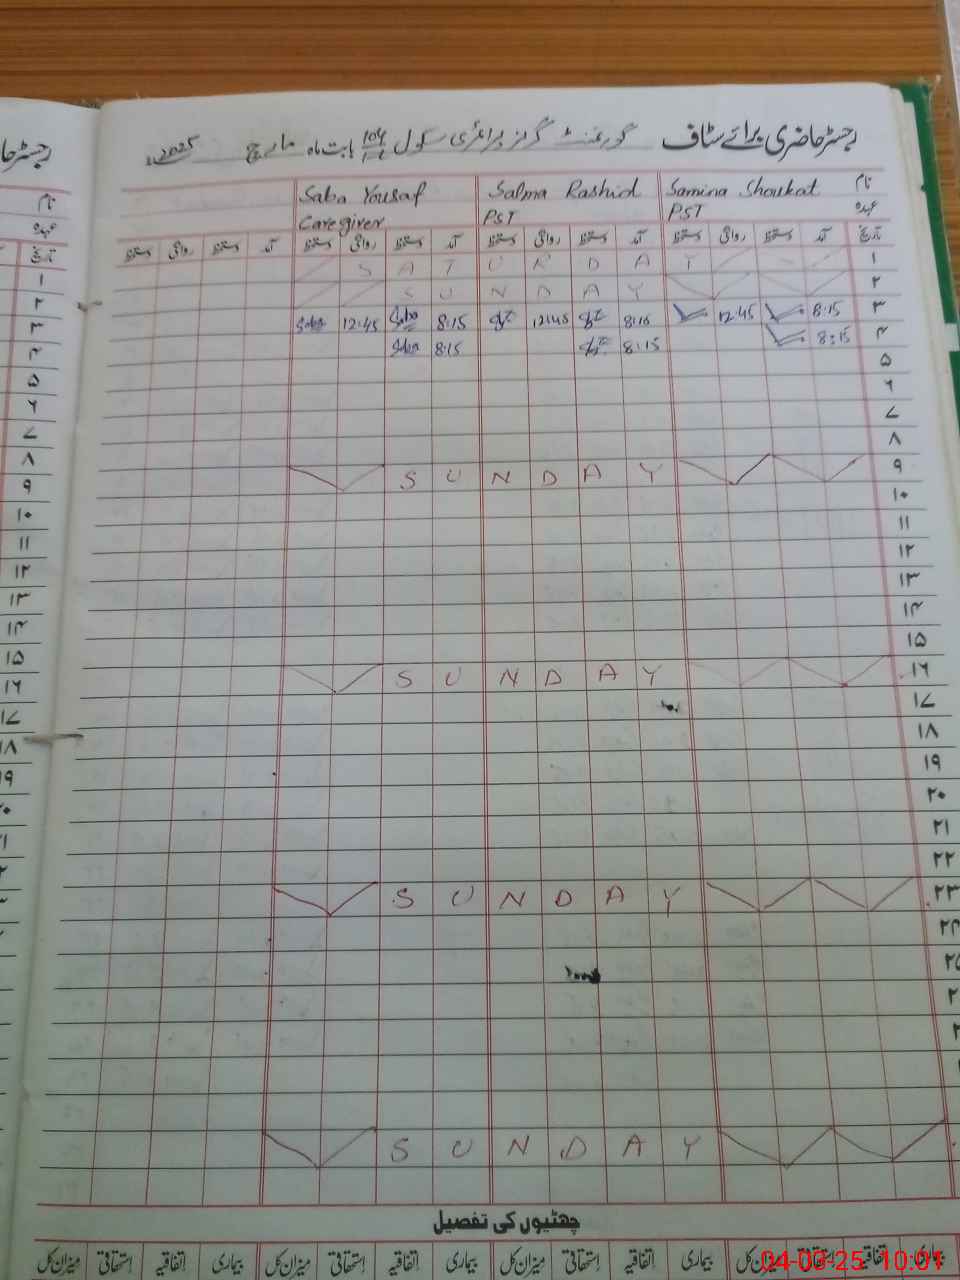 رجسٹر حاضری برائے سٹاف گورنمنٹ گرلز پرائمری سکول 104 بابت ماہ مارچ 2025
نام Samina Shoukat Salma Rashid Saba Yousaf
عہدہ PST PST Caregiver
تاریخ آمد دستخط روانگی دستخط آمد دستخط روانگی دستخط آمد دستخط روانگی دستخط آمد دستخط روانگی دستخط
۱ S A T U R D A Y
۲ S U N D A Y
۳ 8:15 12:45 8:15 12:45 8:15 Saba 12:45 Saba
۴ 8:15 8:15 8:15 Saba
۵
۶
۷
۸
۹ S U N D A Y
۱۰
۱۱
۱۲
۱۳
۱۴
۱۵
۱۶ S U N D A Y
۱۷
۱۸
۱۹
۲۰
۲۱
۲۲
۲۳ S U N D A Y
۲۴
S U N D A Y
چھٹیوں کی تفصیل
بیماری اتفاقیہ استحقاقی میزان کل بیماری اتفاقیہ استحقاقی میزان کل بیماری اتفاقیہ استحقاقی میزان کل بیماری اتفاقیہ استحقاقی میزان کل
04-03-25 10:01